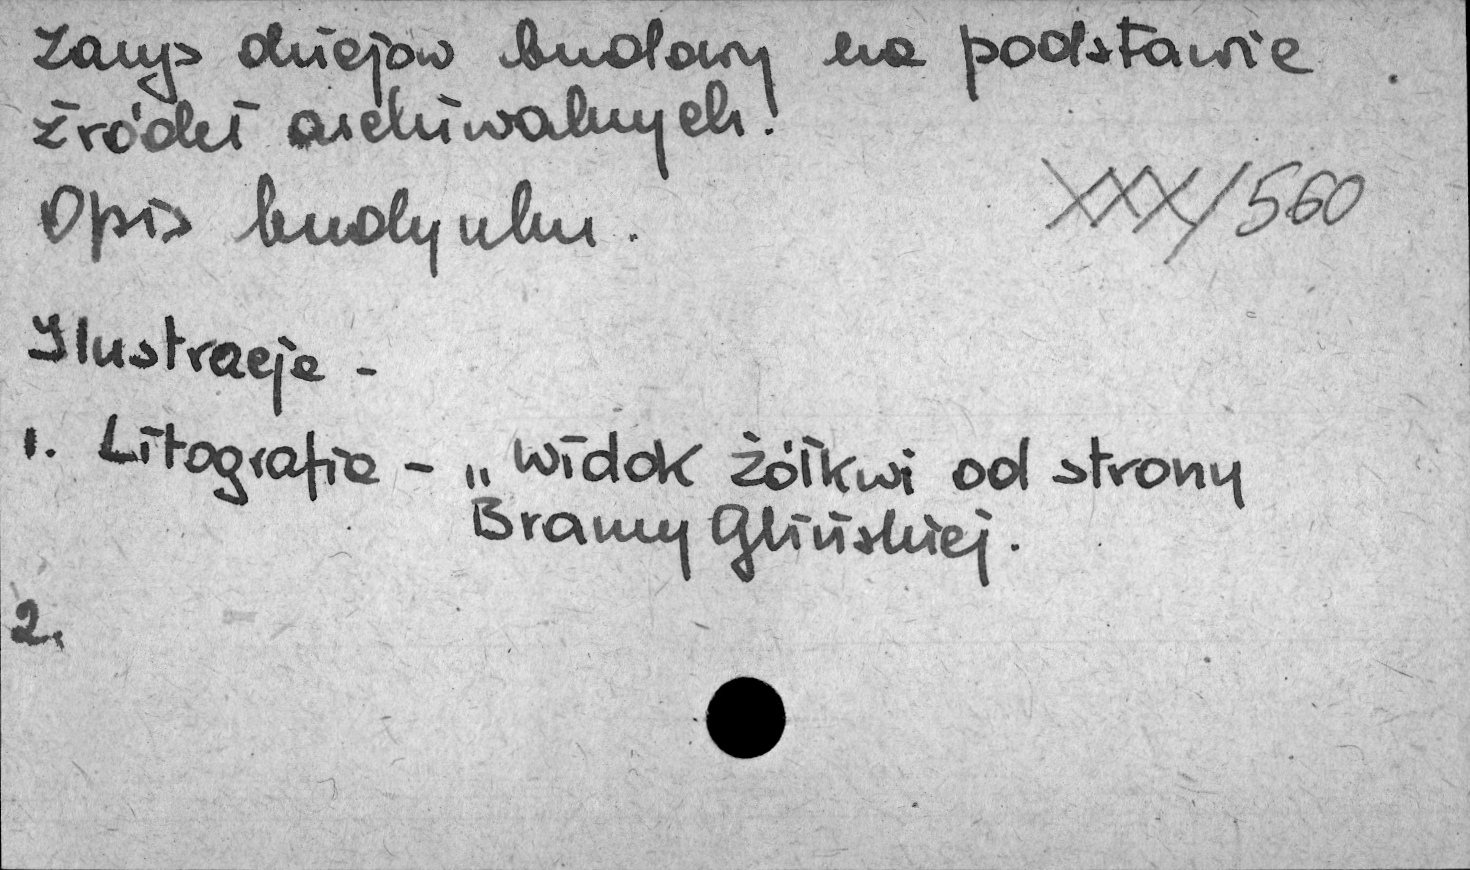 Zarys dziejów budowy na podstawie
źródeł archiwalnych.
Opis budynku.
XXX/560
Ilustracje -
1. Litografia - „Widok Żółkwi od strony
Bramy Glińskiej.
2.